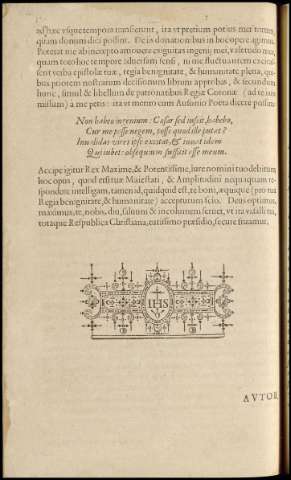 adhæc vsque tempora transierunt, ita vt pretium potius mei tempus,
quam donum dici possint. De iis donationibus in hoc opere agimus.
Poterat me ab incepto amouere exiguitas ingenij mei, valetudo mea,
quam toto hoc tempore aduersam sensi, ni me fluctuantem excitas-
sent verba epistolæ tuæ, regia benignitate, & humanitate plena, qui-
bus priorem nostrarum decisionum librum approbas, & secundum
hunc, simul & libellum de patronatibus Regiæ Coronæ (ad te iam
missum) à me petis: ita vt merito cum Ausonio Poeta dicere possim
Non habeo ingenium: Cæsar sed iussit, habebo,
Cur me posse negem, posse quod ille putat?
Inualidas vires ipse excitat, & iuuat idem
Qui iubet: obsequium sufficit esse meum.
Accipe igitur Rex Maxime, & Potentissime, iure nomini tuo debitum
hoc opus, quod etsi tuæ Maiestati, & Amplitudini nequaquam re-
spondere intelligam, tamen id, quidquid est, te boni, æquique (pro tua
Regia benignitate, & humanitate) accepturum scio. Deus optimus,
maximus, te, nobis, diu, saluum & incolumem seruet, vt ita vasalli tui,
totaque Respublica Christiana, tutissimo præsidio, secure fruamur.
IHS
AVTOR